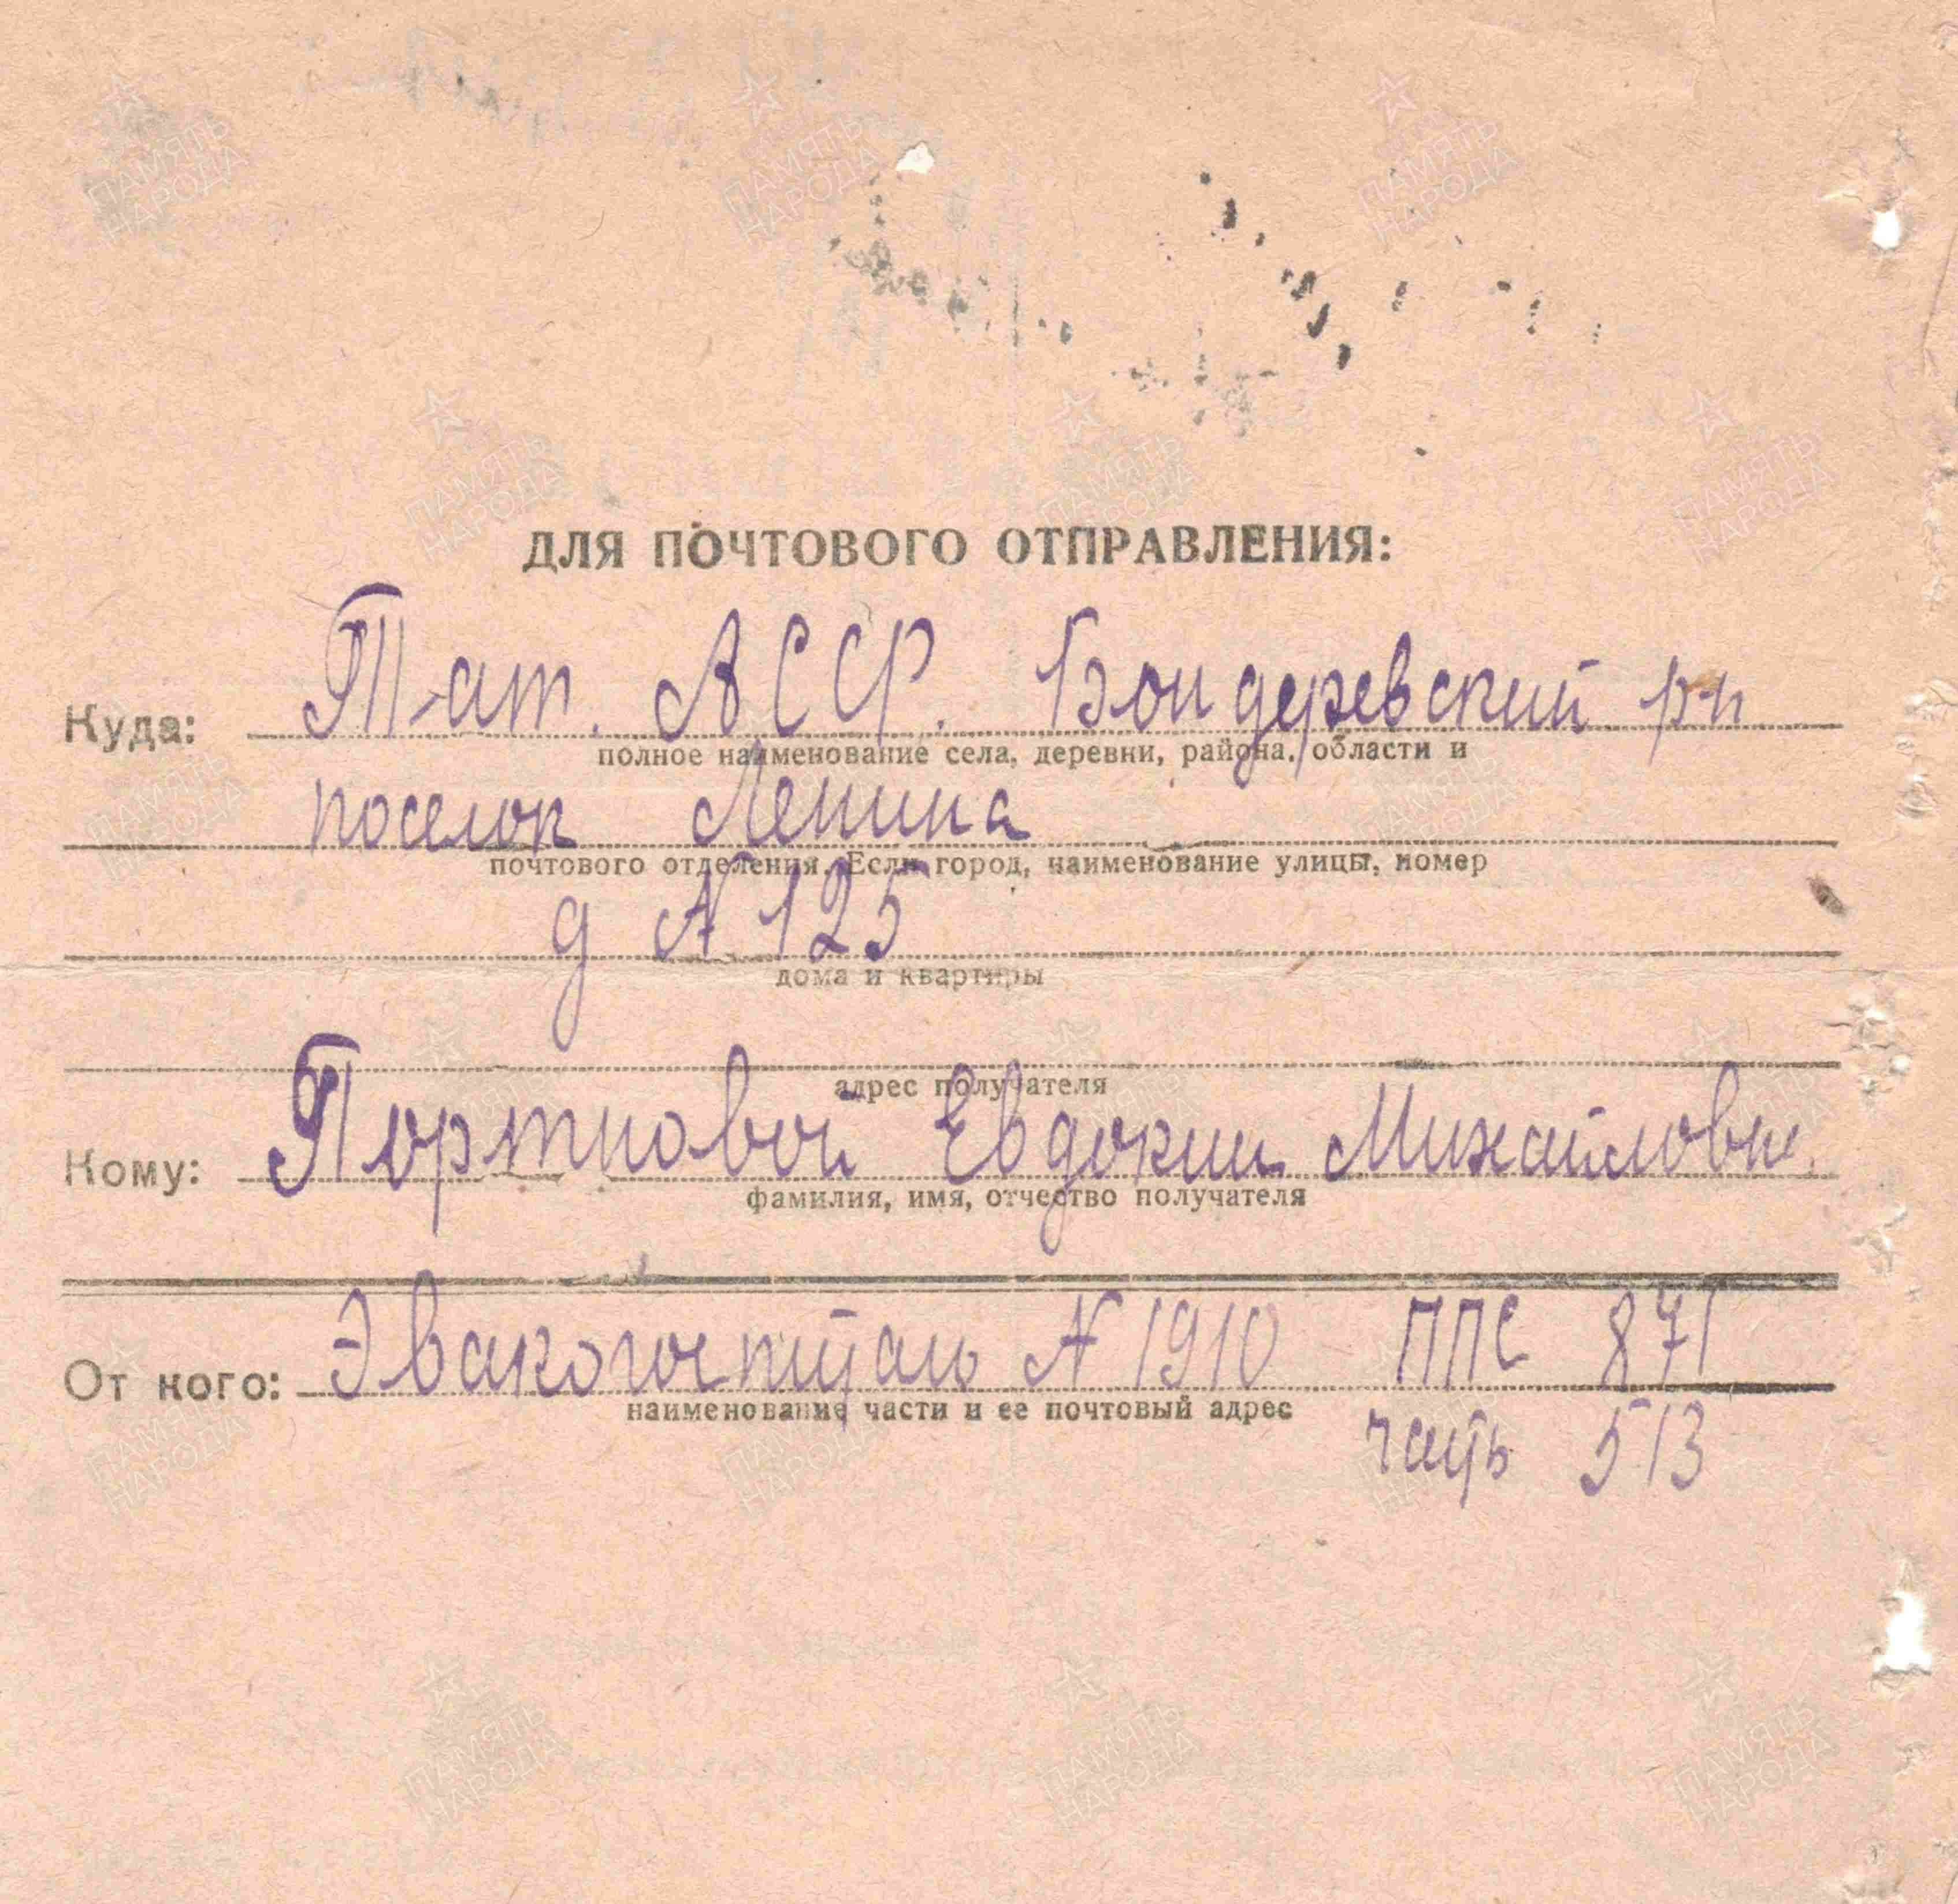 ДЛЯ ПОЧТОВОГО ОТПРАВЛЕНИЯ:
Куда: Тат. АССР. Бондеревский р-н
полное наименование села, деревни, района, области и
поселок Ленина
почтового отделения. Если город, наименование улицы, номер
д № 125
дома и квартиры
адрес получателя
Кому: Портновой Евдокии Михайловне.
фамилия, имя, отчество получателя
От кого: Эвакогоспиталь № 1910 ППС 871
наименование части и ее почтовый адрес
часть 513
ПАМЯТЬ НАРОДА